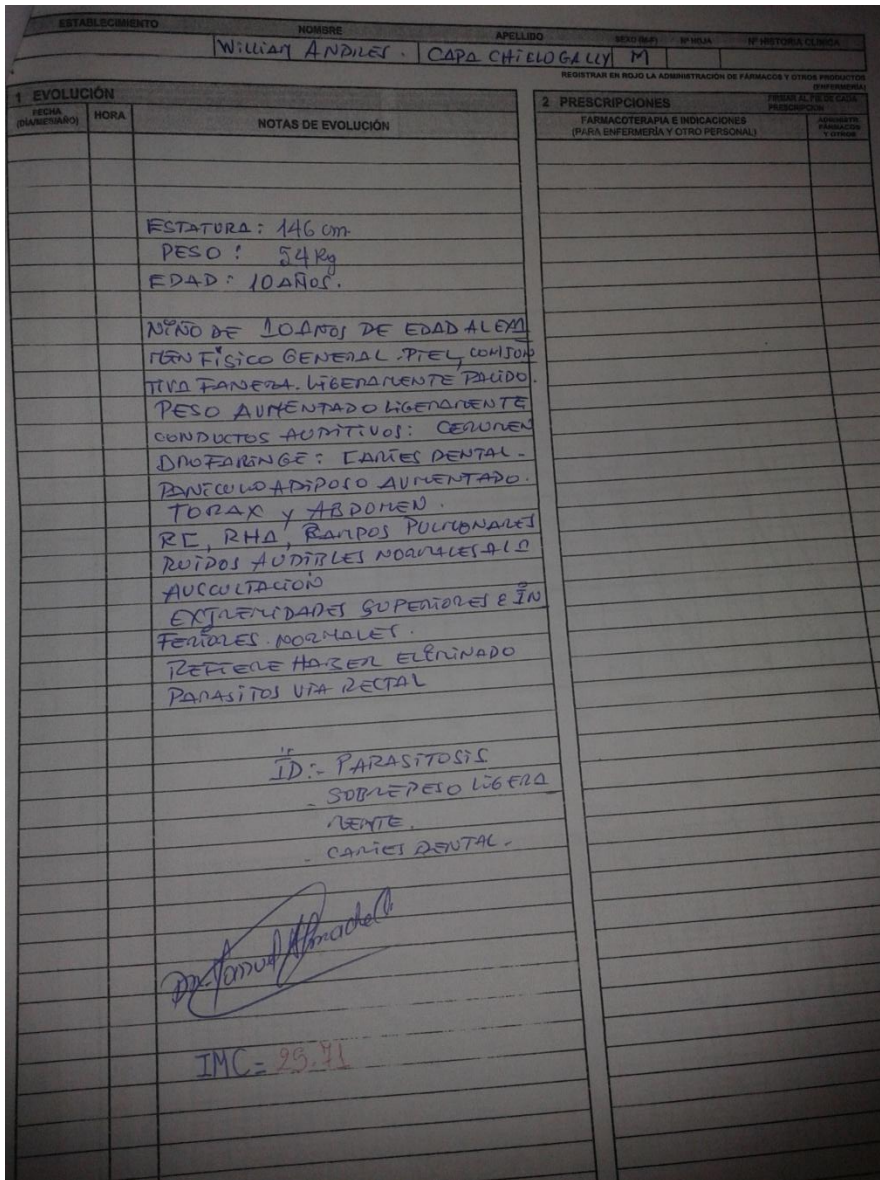 ESTABLECIMIENTO NOMBRE APELLIDO SEXO (M-F) Nº HOJA Nº HISTORIA CLÍNICA
WILLIAM ANDRES. CAPA CHIELOGALLY M
REGISTRAR EN ROJO LA ADMINISTRACIÓN DE FÁRMACOS Y OTROS PRODUCTOS (ENFERMERÍA)
1 EVOLUCIÓN
FECHA (DIA/MES/AÑO) HORA NOTAS DE EVOLUCIÓN
2 PRESCRIPCIONES FIRMAR AL PIE DE CADA PRESCRIPCIÓN
FARMACOTERAPIA E INDICACIONES
(PARA ENFERMERÍA Y OTRO PERSONAL)
ADMINISTR. FÁRMACOS Y OTROS
ESTATURA: 146 cm.
PESO: 54 Kg
EDAD: 10 AÑOS.
NIÑO DE 10 AÑOS DE EDAD AL EXA
MEN FÍSICO GENERAL. PIEL, CONJUN
TIVA FANERA. LIGERAMENTE PALIDO.
PESO AUMENTADO LIGERAMENTE
CONDUCTOS AUDITIVOS: CERUMEN
OROFARINGE: CARIES DENTAL-
PANICULO ADIPOSO AUMENTADO.
TORAX Y ABDOMEN.
RC, RHA, CAMPOS PULMONARES
RUIDOS AUDIBLES NORMALES A LA
AUSCULTACION
EXTREMIDADES SUPERIORES E IN
FERIORES. NORMALES.
REFIERE HABER ELIMINADO
PARASITOS VIA RECTAL
ID:- PARASITOSIS
- SOBREPESO LIGERA
MENTE.
- CARIES DENTAL-
IMC = 25.71